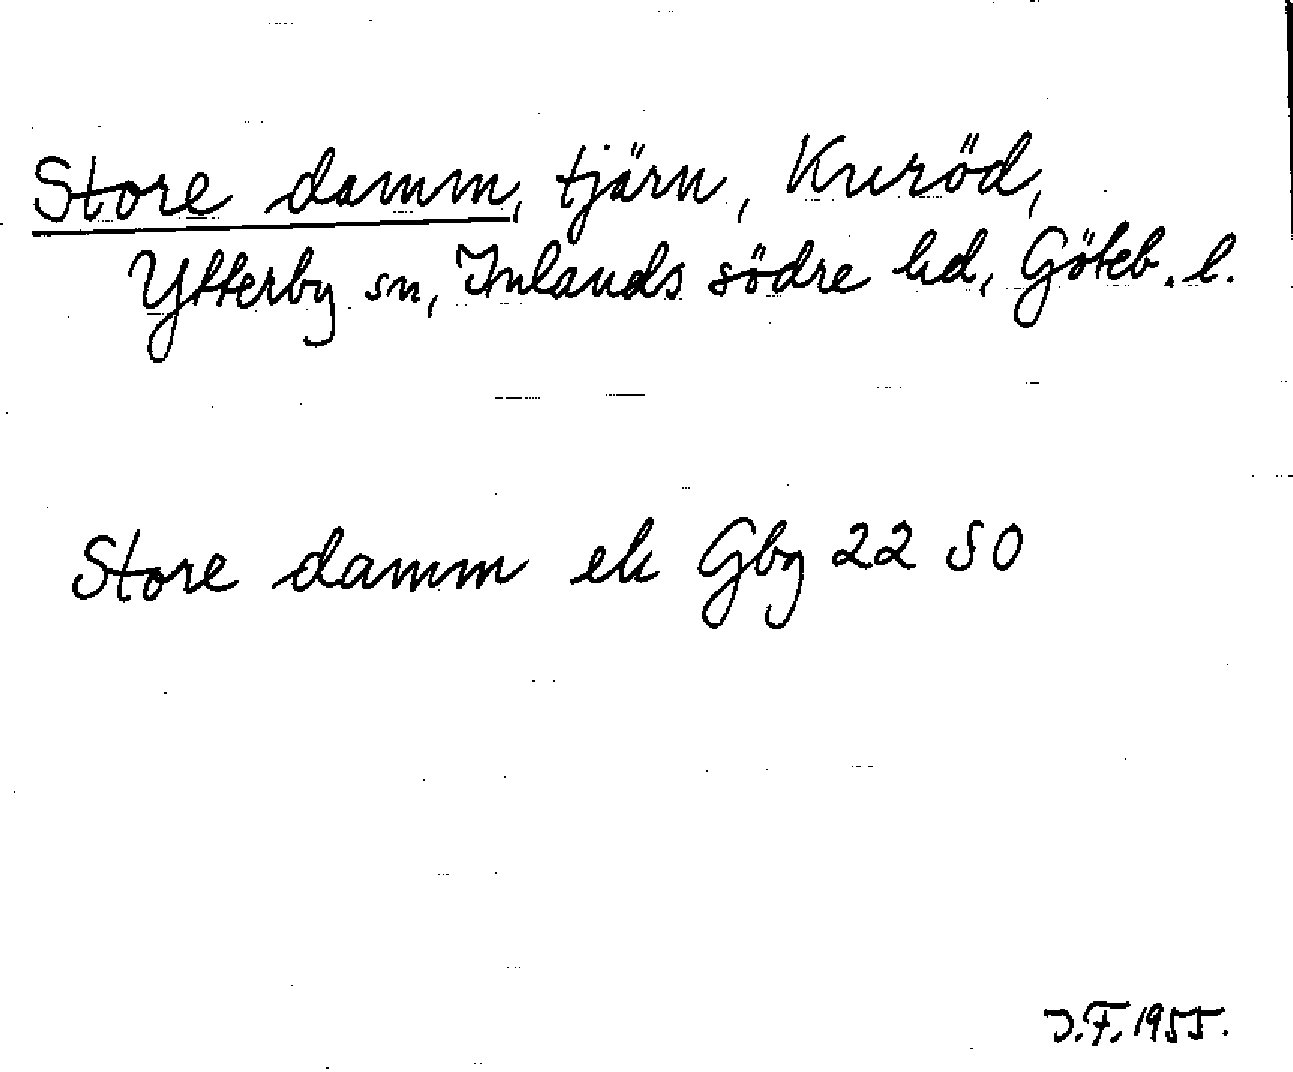 Store damm, tjärn, Kuröd,
Ytterby sn, Inlands södre hd, Göteb. l.
Store damm ek Gbg 22 SO
J.F. 1955.